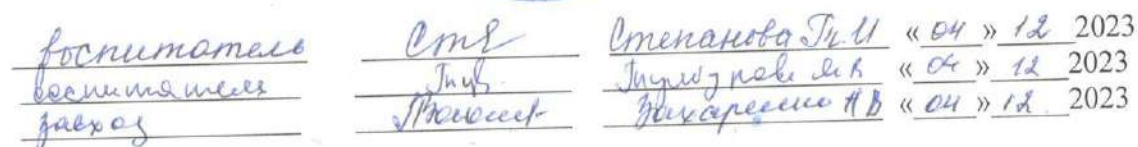 воспитатель Степанова Г.И «04» 12 2023
воспитатель «04» 12 2023
завхоз Захаренко НВ «04» 12 2023